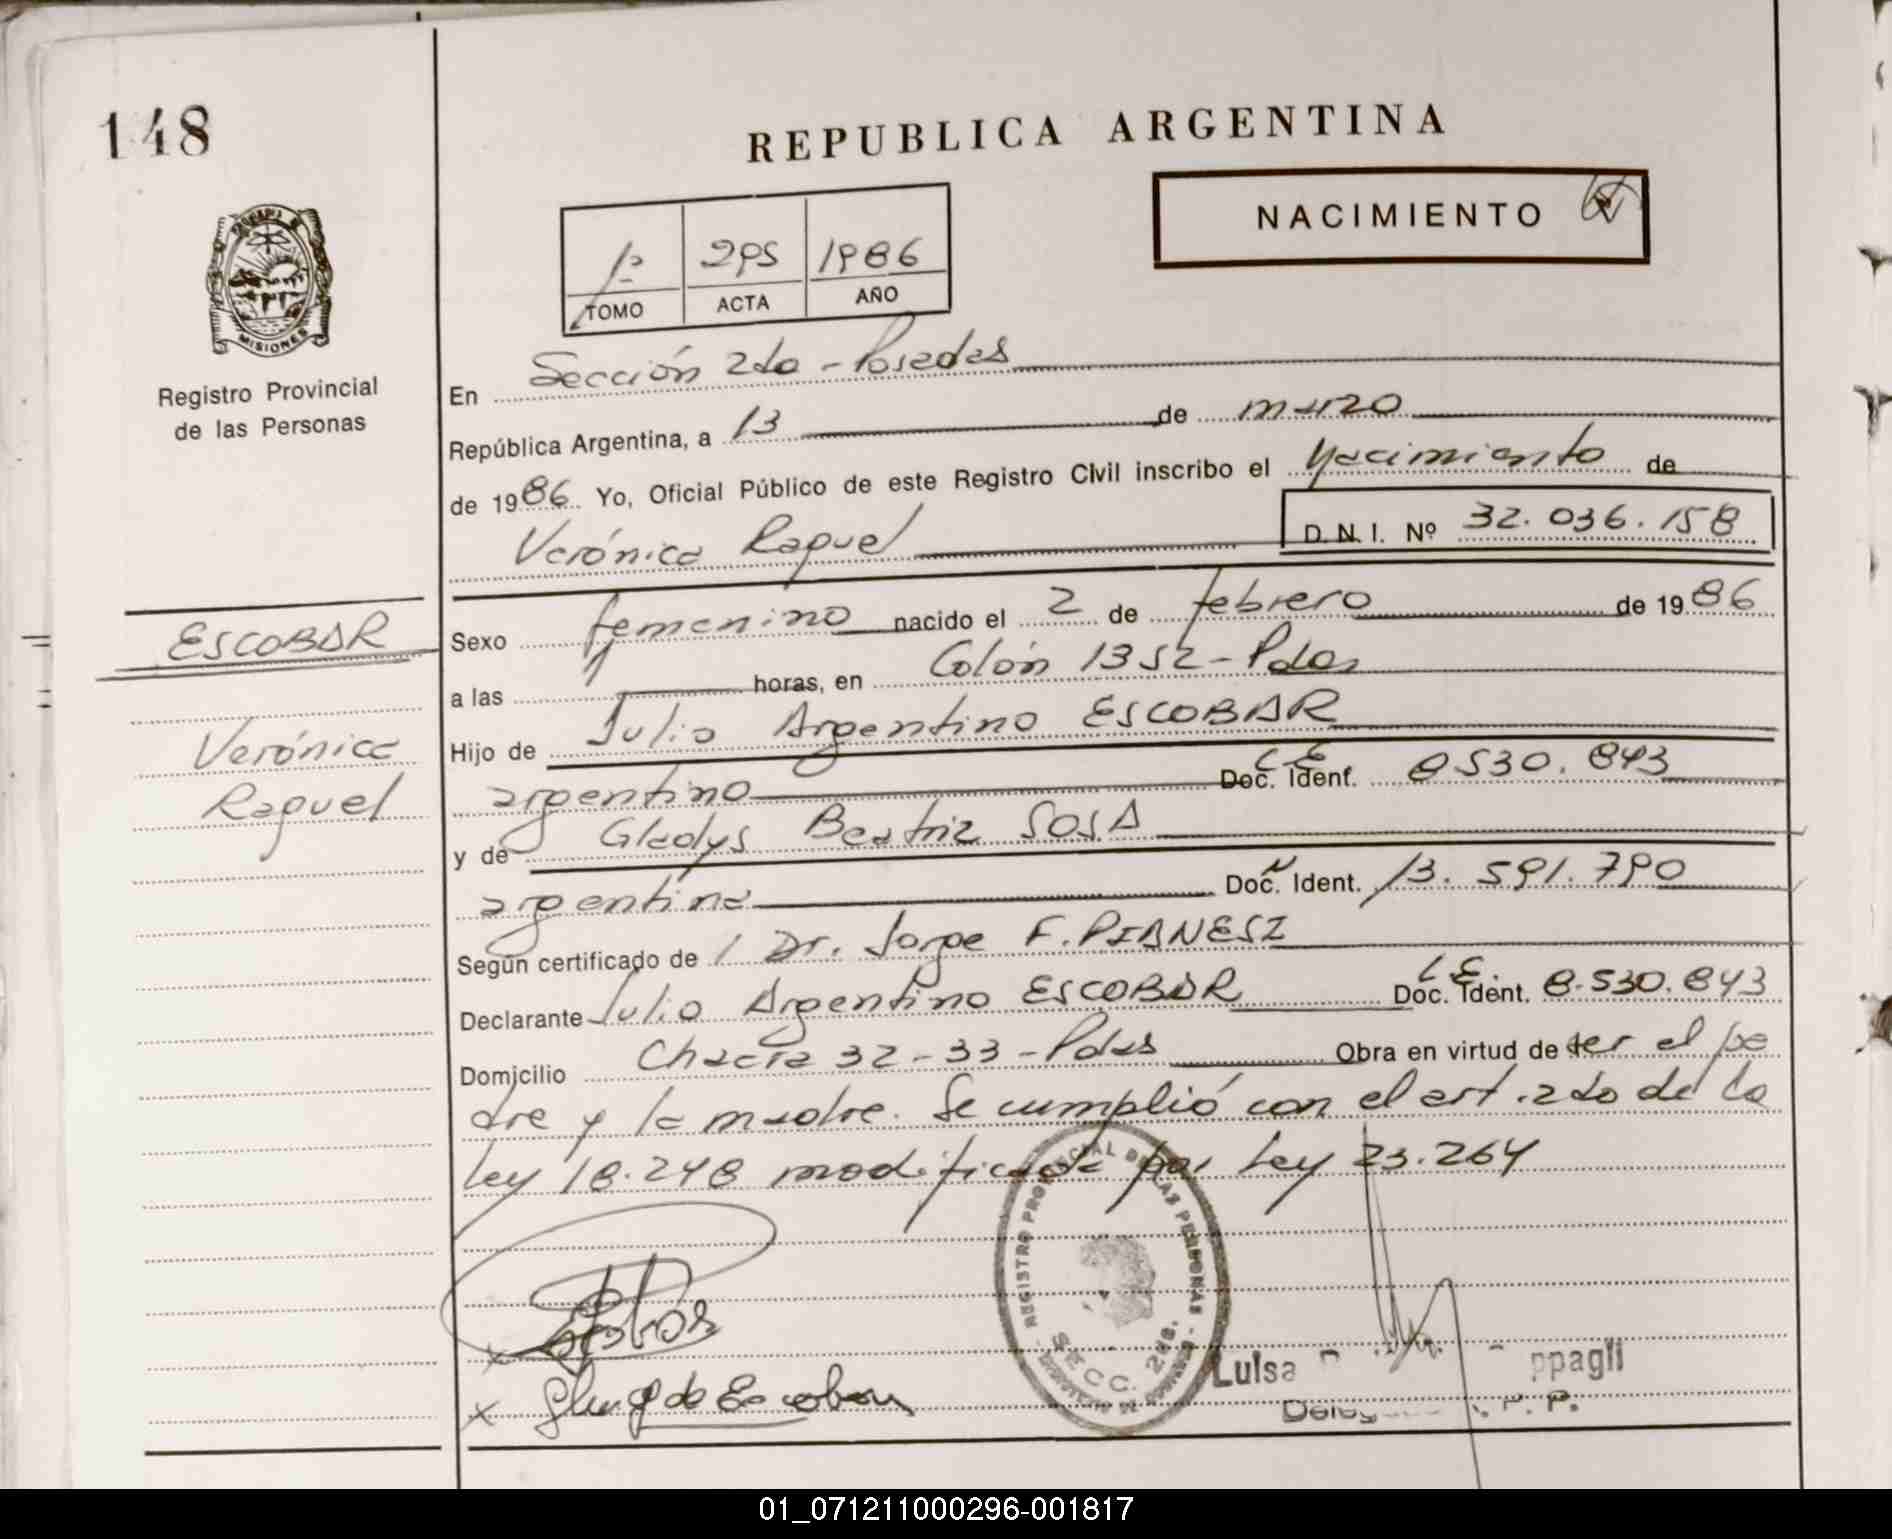 148
REPUBLICA ARGENTINA
NACIMIENTO
1º 295 1986
TOMO ACTA AÑO
MISIONES
Registro Provincial
de las Personas
En Sección 2da - Posadas
República Argentina, a 13 de marzo
de 1986. Yo, Oficial Público de este Registro Civil inscribo el Nacimiento de
Verónica Raquel D.N.I. Nº 32.036.158
ESCOBAR
Sexo femenino nacido el 2 de febrero de 1986
a las horas, en Colón 1352 - Pdas
Verónica
Raquel
Hijo de Julio Argentino ESCOBAR
argentino Doc. Ident. L E 8530.843
y de Gladys Beatriz SOSA
argentina Doc. Ident. 13.591.790
Según certificado de Dr. Jorge F. PIANESI
Declarante Julio Argentino ESCOBAR Doc. Ident. L E 8.530.843
Domicilio Chacra 32-33 - Pdas Obra en virtud de ser el pa
dre y la madre. Se cumplió con el art. 2do de la
ley 18.248 modificada por Ley 23.264
REGISTRO PROVINCIAL DE LAS PERSONAS
SECC. 2da.
Luisa ppagli
x
x de Escobar
01_071211000296-001817